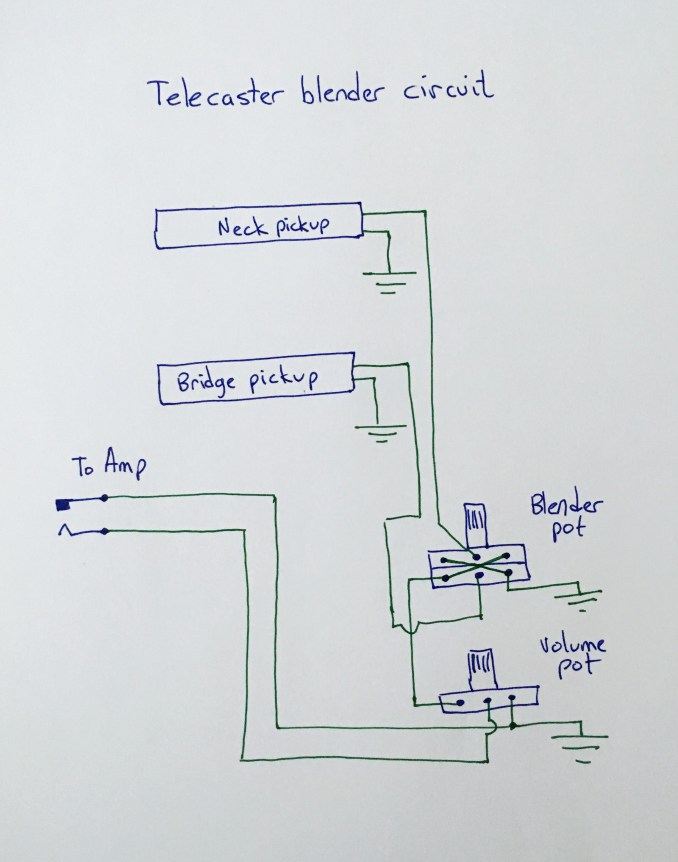 Telecaster blender circuit
Neck pickup
Bridge pickup
To Amp
Blender
pot
Volume
pot